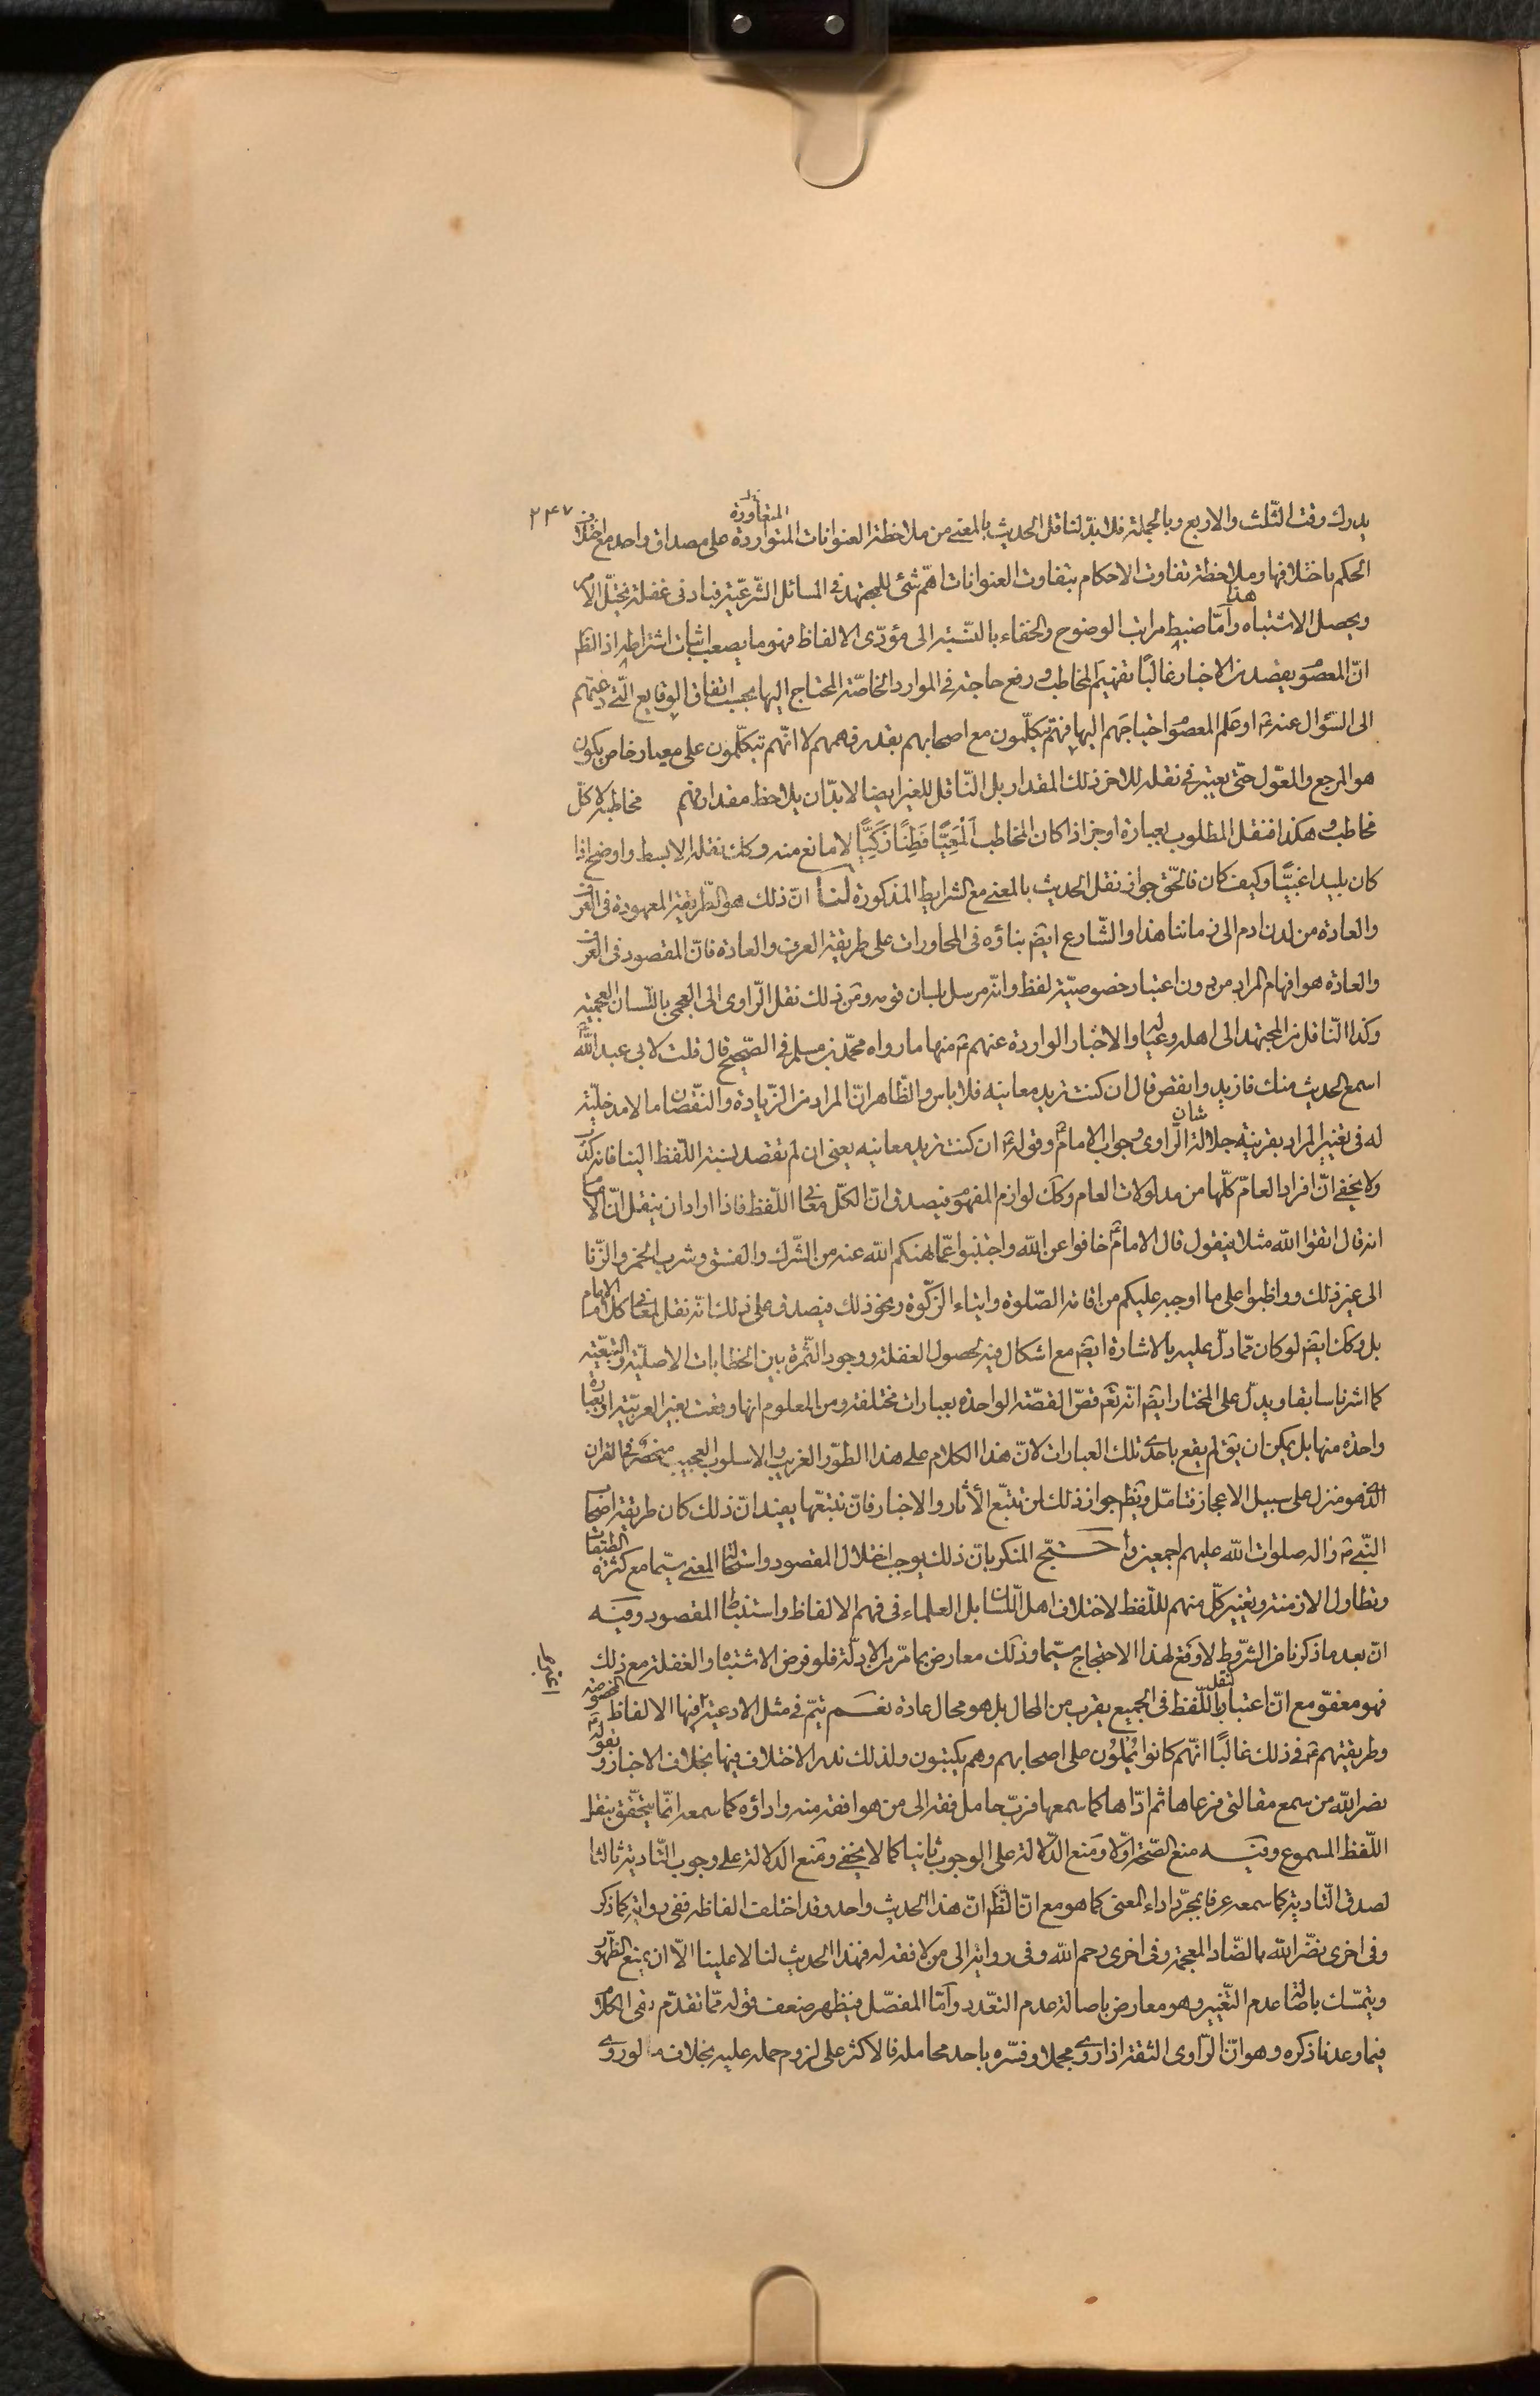 ۲۴۷
المتعاورة
يدرك وقت الثلث والاربع وبالجملة فلا بدّ لناقل الحديث بالمعنى من ملاحظة العنوانات المتواردة على مصداق واحد مع اختلاف
الحكم باختلافها وملاحظة تفاوت الاحكام بتفاوت العنوانات اهمّ شئ للمجتهد فى المسائل الشّرعيّة فبادنى غفلة يختلّ الامر
ويحصل الاشتباه هذا وامّا ضبط مراتب الوضوح والخفاء بالنّسبة الى مؤدّى الالفاظ فهو ما يصعب اثبات اشتراطه اذ الظ
انّ المعصوم يقصد من الاخبار غالبًا تفهيم المخاطب ورفع حاجته فى الموارد الخاصّة المحتاج اليها بحسب اتفاق الوقايع الّتى دعتهم
الى السّؤال عنه ع او علم المعصوم احتياجهم اليها فهم يتكلّمون مع اصحابهم بقدر فهمهم لا انّهم يتكلّمون على معيار خاص يكون
هو المرجع والمعوّل حتّى يعتبر فى نقله للاخر ذلك المقدار بل النّاقل للغير ايضا لابدّ ان يلاحظ مقدار فهم مخاطبه لا كلّ
مخاطب وهكذا فنقل المطلوب بعبارة اوجز اذا كان المخاطب المعيًّا فطنًا زكيًّا لا مانع منه وكك نقله الابسط واوضح اذا
كان بليدا غبيًّا وكيف كان فالحّق جواز نقل الحديث بالمعنى مع الشرايط المذكورة لنا انّ ذلك هو الطّريقة المعهودة فى العرف
والعادة من لدن ادم الى زماننا هذا والشّارع ايضً بناؤه فى المحاورات على طريقة العرف والعادة فانّ المقصود فى العرف
والعادة هو افهام المراد من دون اعتبار خصوصيّة لفظ وانّه مرسل بلسان قومه ومن ذلك نقل الرّاوى الى العجمى باللّسان العجميّة
وكذا النّاقل من المجتهد الى اهله وعياله والاخبار الواردة عنهم ع منها ما رواه محمّد بن مسلم فى الصّحيح قال قلت لابى عبد اللّه ع
اسمع الحديث منك فازيد وانقص قال ان كنت تريد معانيه فلا باس والظّاهر انّ المراد من الزّيادة والنّقصان ما لا مدخليّة
له فى تغيير المراد بقرينة جلالة شان الرّاوى وجواب الامام ع وقوله ع ان كنت تريد معانيه يعنى ان لم تقصد نسبة اللّفظ الينا فانه كذب
ولا يخفى انّ افراد العامّ كلّها من مدلولات العام وكك لوازم المفهوم فيصدق انّ الكلّ معانى اللّفظ فاذا اراد ان ينقل انّ الامام
انه قال اتقوا اللّه مثلا فيقول قال الامام ع خافوا عن اللّه واجتنبوا عمّا نهنكم اللّه عنه من الشّرك والفسق وشرب الخمر والزّنا
الى غير ذلك وواظبوا على ما اوجبه عليكم من اقامة الصّلوة وايتاء الزكّوة ونحو ذلك فيصدق على ذلك انّه نقل لمعانى كلام الامام
بل وكك ايضً لو كان ممّا دلّ عليه بالاشارة ايضً مع اشكال فيه لحصول الغفلة ووجود الثّمرة بين الخطابات الاصليّة والتبعيّة
كما اشرنا سابقا ويدلّ على المختار ايضً انّه تعم قصّ القصّة الواحدة بعبارات مختلفة ومن المعلوم انها وقعت بغير العربيّة او بعبارة
واحدة منها بل يمكن ان يقّ لم يقع باحدى تلك العبارات لانّ هذا الكلام على هذا الطّور الغريب والاسلوب العجيب منحصر فى القران
الّذى هو منزل على سبيل الاعجاز فتامّل ويظهر جواز ذلك لمن تتبّع الأثار والاخبار فانّ تتبّعها يفيد انّ ذلك كان طريقة اصحاب
النّبى ص واله صلوات اللّه عليهم اجمعين واحتجّ المنكر بانّ ذلك يوجب اختلال المقصود واستحالة المعنى سيّما مع كثرة الطبقات
وتطاول الازمنة وتغيير كلّ منهم لللّفظ لاختلاف اهل اللّسان بل العلماء فى فهم الالفاظ واستنباط المقصود وفيه
انّ بعد ما ذكرنا من الشّروط لا وقع لهذا الاحتجاج سيّما وذلك معارض بما مرّ من الادلّة فلو فرض الاشتباه والغفلة مع ذلك
فهو معفوّ مع انّ اعتبار نقل اللّفظ فى الجميع يقرب من المحال بل هو محال عادة نعم يتمّ فى مثل الادعية فيها الالفاظ المخصوصة
وطريقتهم ع فى ذلك غالبًا انّهم كانوا يُملُون على اصحابهم وهم يكتبون ولذلك ندر الاختلاف فيها بخلاف الاخبار وبقوله ع
نضر اللّه من سمع مقالتى فوعاها ثم ادّاها كما سمعها فربّ حامل فقه الى من هو افقه منه واداؤه كما سمعه انّما يتحقّق بنقل
اللّفظ المسموع وفيه منع الصّحة اوّلا ومنع الدّلالة على الوجوب ثانيا كما لا يخفى ومنع الدّلالة على وجوب التّادية ثالثا
لصدق التّادية كما سمعه عرفا بمجرّد اداء المعنى كما هو مع انّ الظّ انّ هذا الحديث واحد وقد اختلف الفاظه ففى رواية كما ذكر
وفى اخرى نضّر اللّه بالضّاد المعجمة وفى اخرى رحم اللّه وفى رواية الى من لا فقه له فهذا الحديث لنا لا علينا الّا ان يمنع الظّهور
ويتمسّك باصالة عدم التّغيير وهو معارض باصالة عدم التعّدد وامّا المفصّل فيظهر ضعف قوله ممّا تقدّم بقى الكلام
فيما وعدنا ذكره وهو انّ الرّاوى الثقة اذا روى مجملا وفسّره باحد محامله فالاكثر على لزوم حمله عليه بخلاف ما لو روى